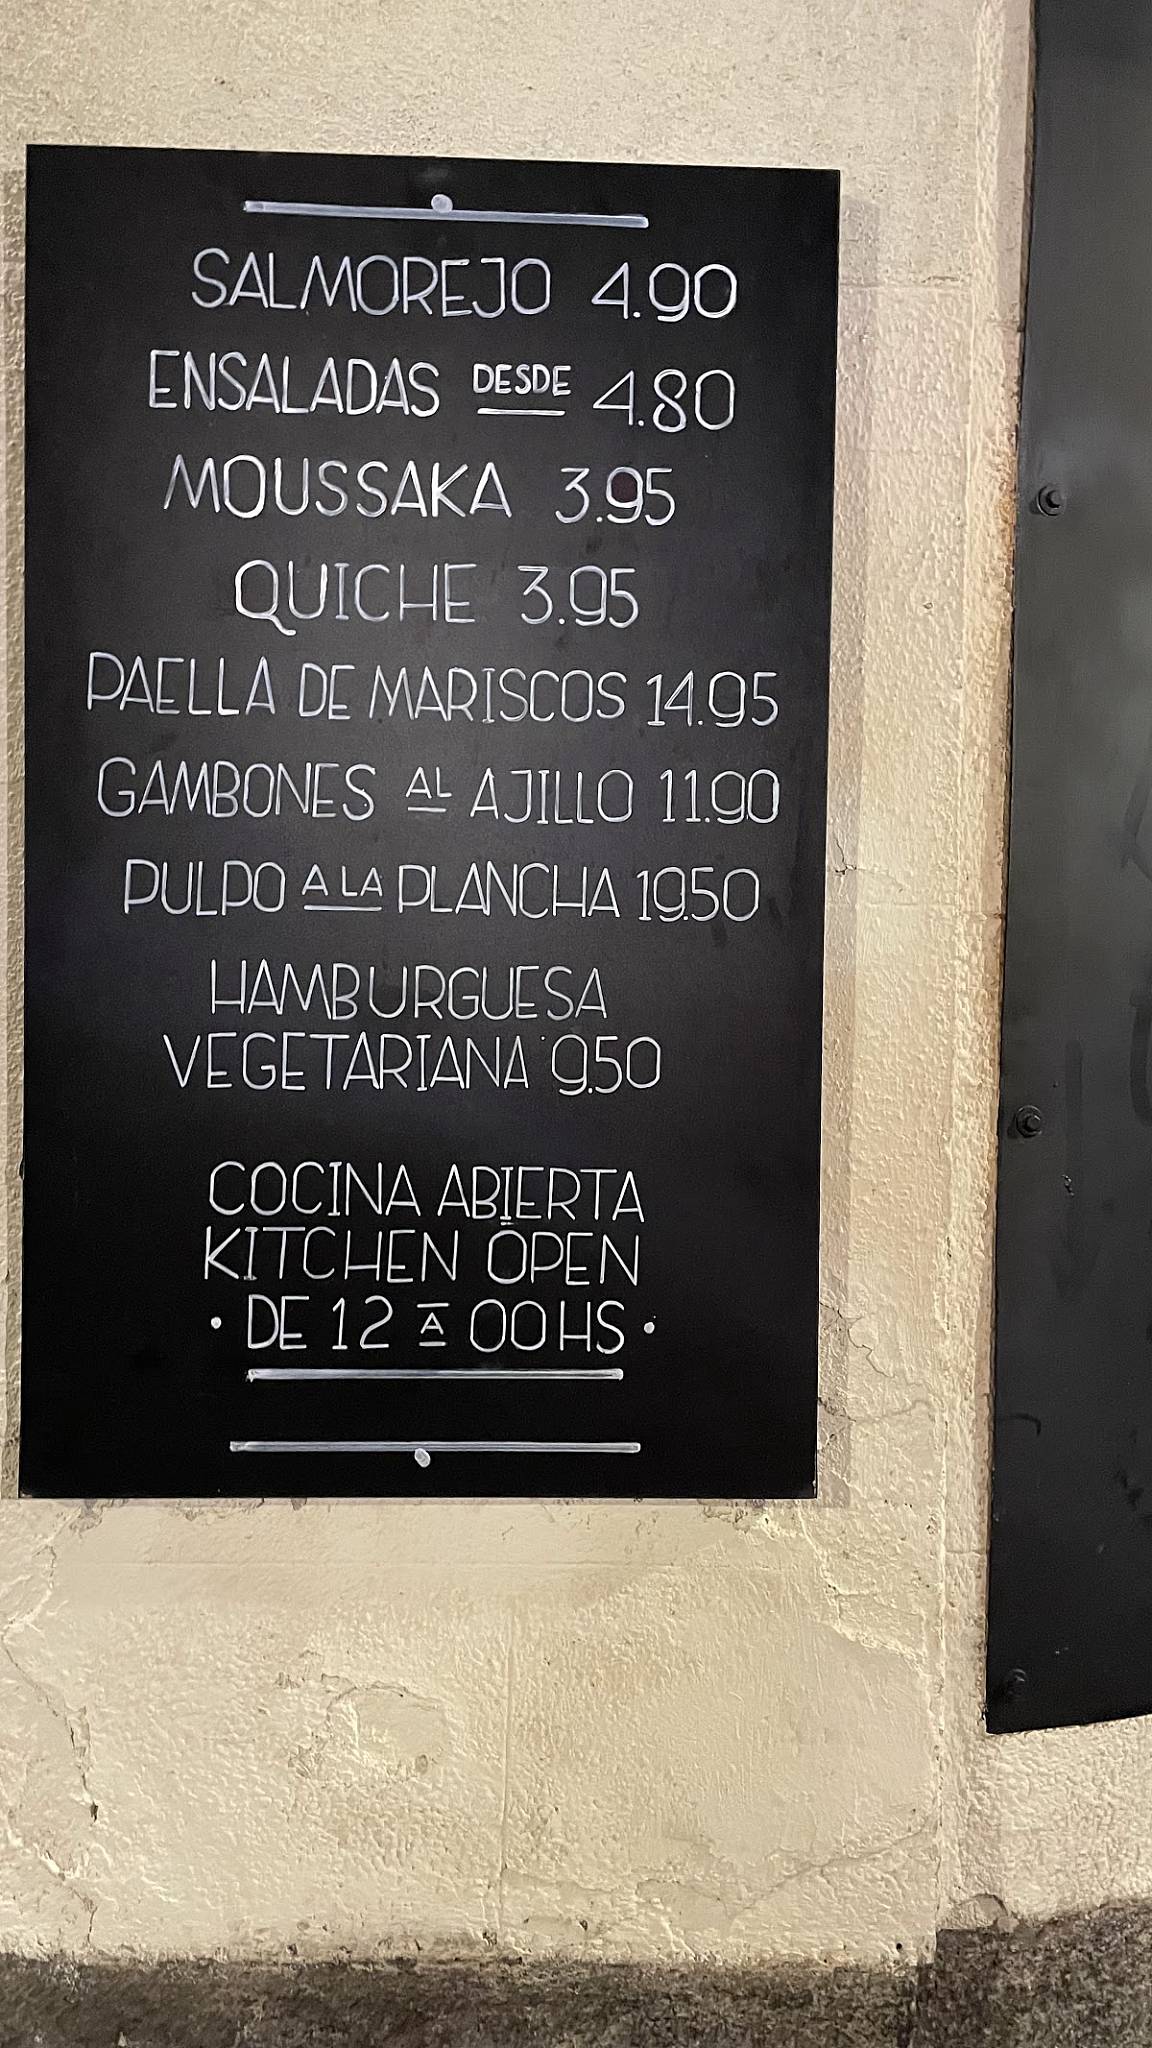 SALMOREJO 4.90
ENSALADAS DESDE 4.80
MOUSSAKA 3.95
QUICHE 3.95
PAELLA DE MARISCOS 14.95
GAMBONES AL AJILLO 11.90
PULPO A LA PLANCHA 19.50
HAMBURGUESA
VEGETARIANA 9.50
COCINA ABIERTA
KITCHEN OPEN
• DE 12 A 00HS •